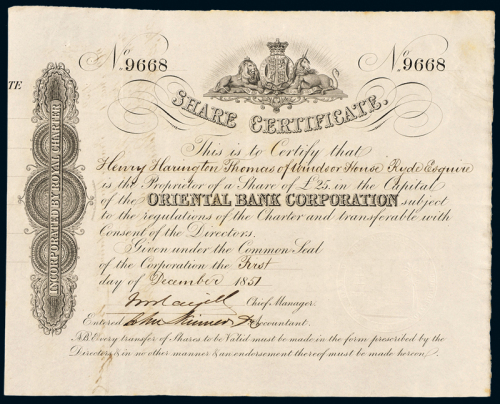 No. 9668
No. 9668
TE
SHARE CERTIFICATE.
INCORPORATED BY ROYAL CHARTER
This is to Certify that
Henry Harington Thomas of Windsor House Ryde Esquire
is the Proprietor of a Share of £25. in the Capital
of the ORIENTAL BANK CORPORATION subject
to the regulations of the Charter and transferable with
Consent of the Directors.
Given under the Common Seal
of the Corporation the First
day of December 1851
Chief Manager.
Entered Accountant.
N.B. Every transfer of Shares to be Valid must be made in the form prescribed by the
Directors & in no other manner & an endorsement thereof must be made hereon.